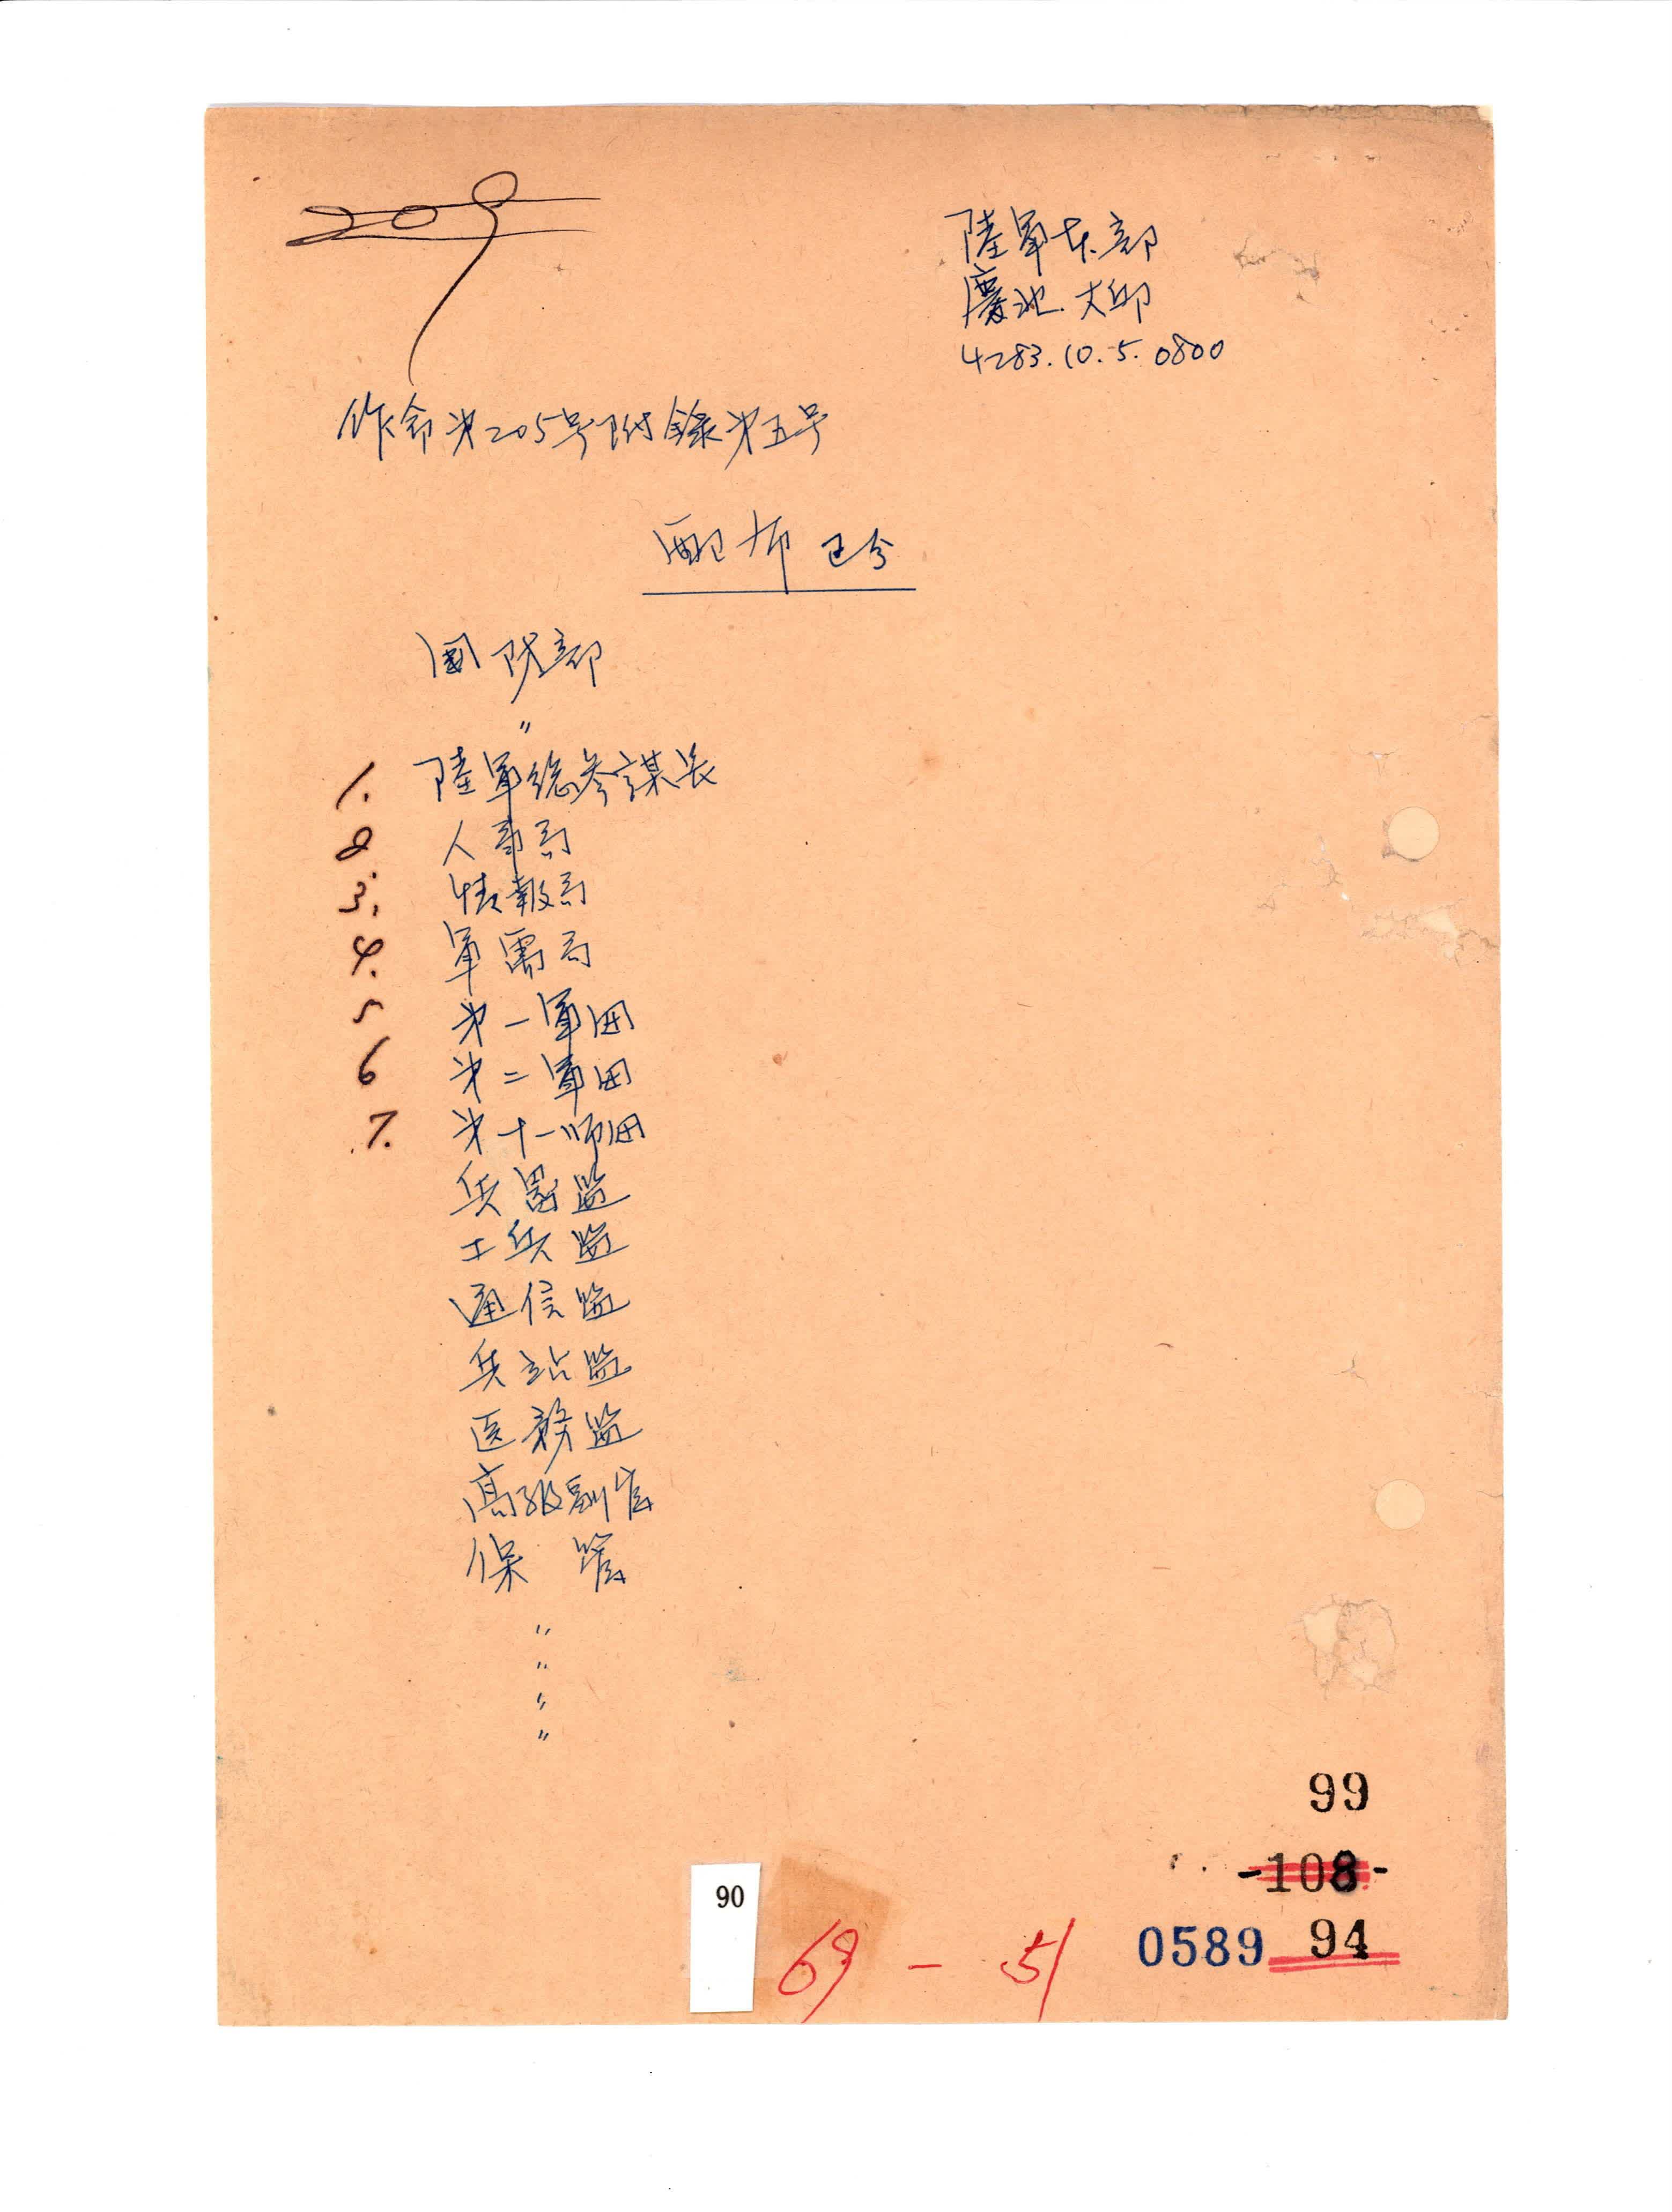 209
陸軍本部
慶北 大邱
4283.10.5.0800
作命第205号附録第五号
配布区分
国防部
〃
1. 陸軍総参謀長
2 人事局
3. 情報局
4. 軍需局
5 第一軍団
6 第二軍団
7. 第十一師団
兵器監
工兵監
通信監
兵站監
医務監
高級副官
保 管
〃
〃
〃
〃
99
-108-
90
69 - 51
0589 94